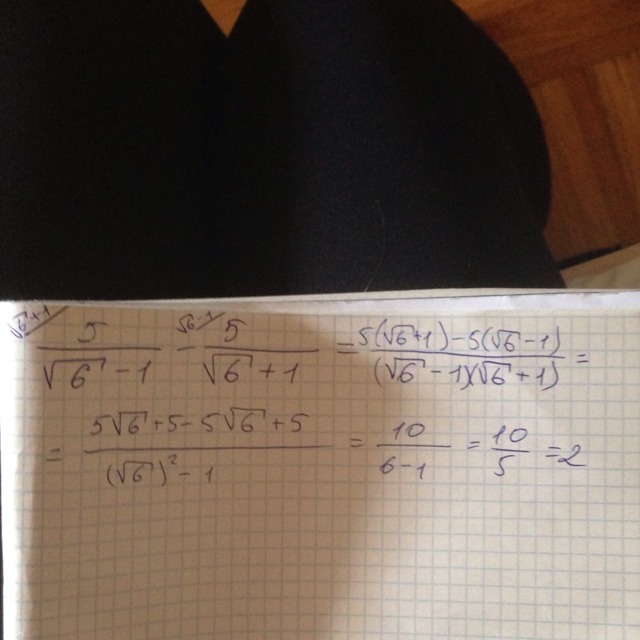 √6+1/ √6-1/
5/(√6-1) - 5/(√6+1) = (5(√6+1)-5(√6-1))/((√6-1)(√6+1)) =
= (5√6+5-5√6+5)/((√6)²-1) = 10/(6-1) = 10/5 = 2